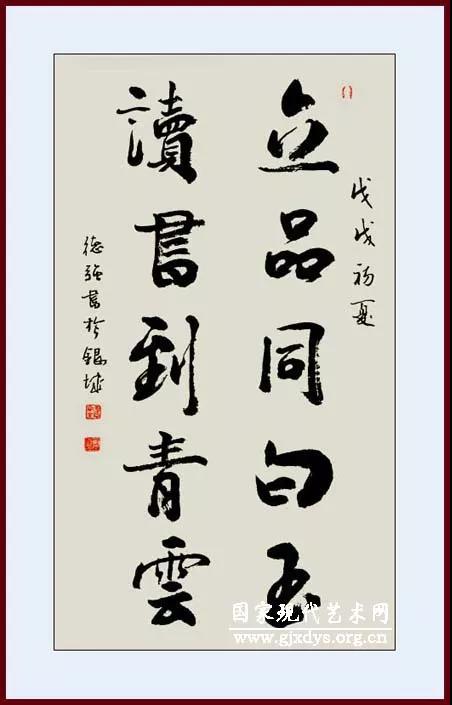 戊戌初夏
立品同白玉
讀書到青雲
德強書於銀城
国家现代艺术网
www.gjxdys.org.cn